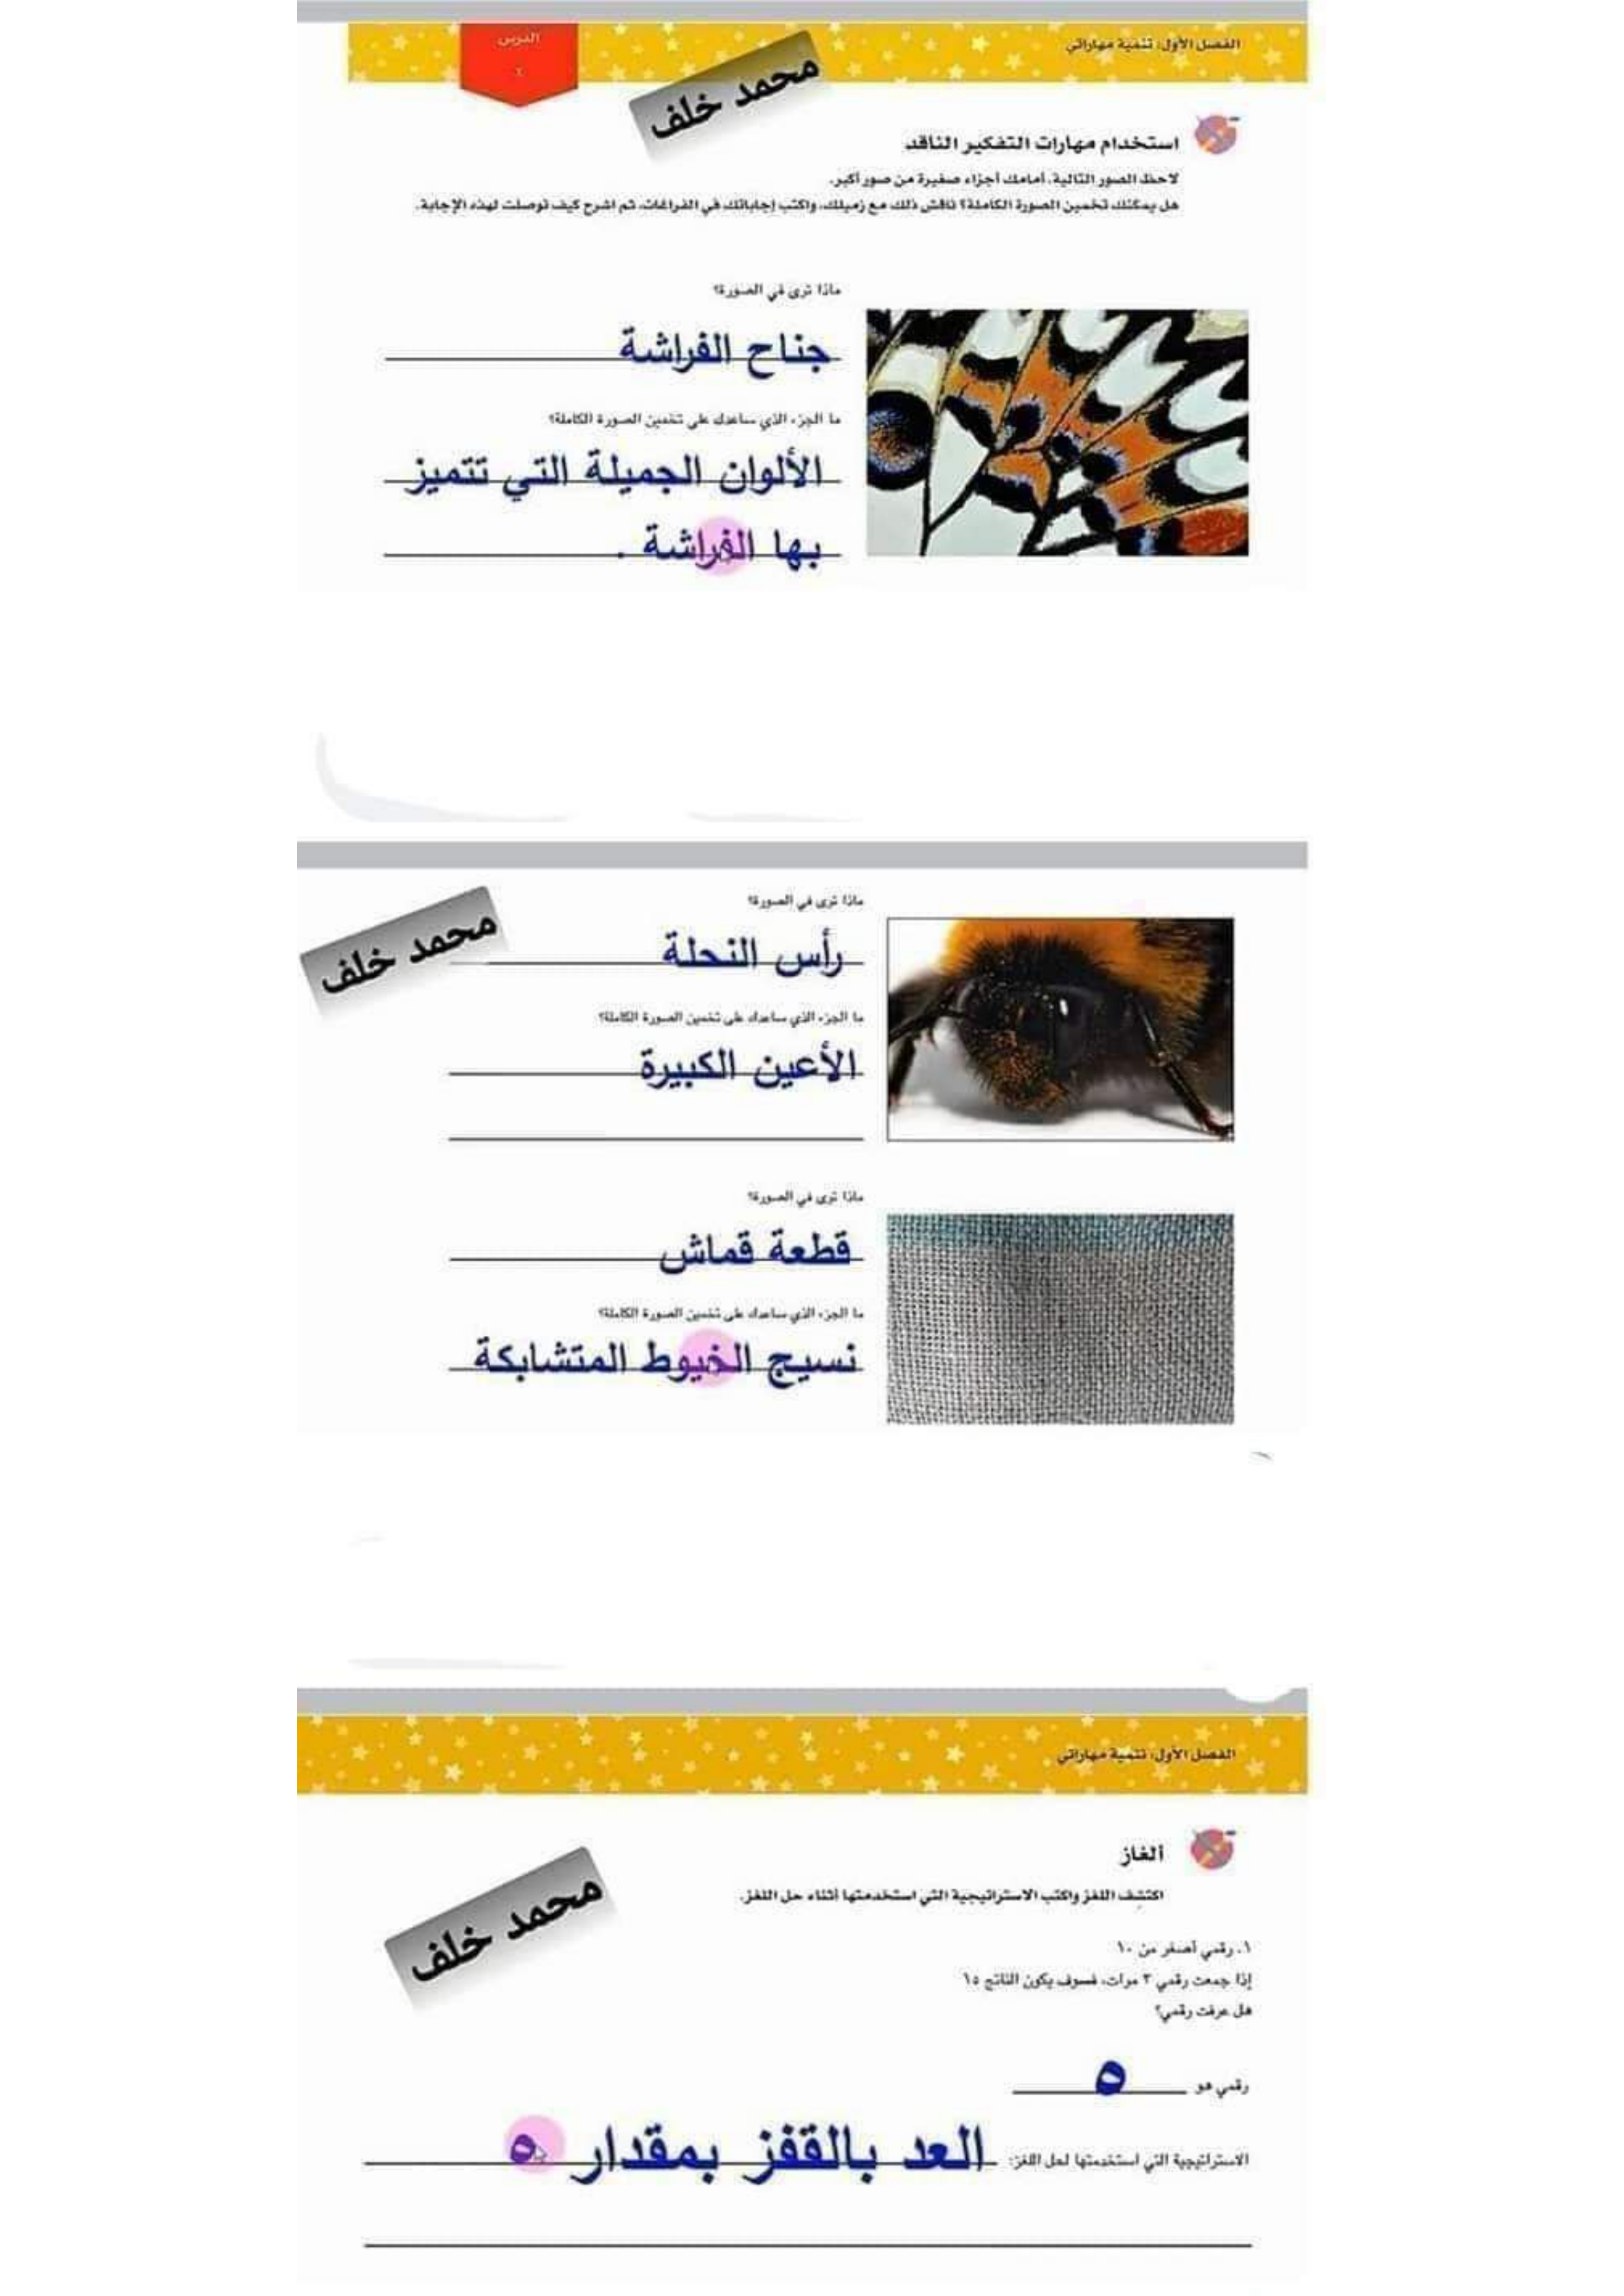 الفصل الأول: تنمية مهاراتي
الدرس
٢
محمد خلف
استخدام مهارات التفكير الناقد
لاحظ الصور التالية. أمامك أجزاء صغيرة من صور أكبر.
هل يمكنك تخمين الصورة الكاملة؟ ناقش ذلك مع زميلك، واكتب إجاباتك في الفراغات، ثم اشرح كيف توصلت لهذه الإجابة.
ماذا ترى في الصورة؟
جناح الفراشة
ما الجزء الذي ساعدك على تخمين الصورة الكاملة؟
الألوان الجميلة التي تتميز
بها الفراشة .
محمد خلف
ماذا ترى في الصورة؟
رأس النحلة
ما الجزء الذي ساعدك على تخمين الصورة الكاملة؟
الأعين الكبيرة
ماذا ترى في الصورة؟
قطعة قماش
ما الجزء الذي ساعدك على تخمين الصورة الكاملة؟
نسيج الخيوط المتشابكة
الفصل الأول: تنمية مهاراتي
ألغاز
اكتشف اللغز واكتب الاستراتيجية التي استخدمتها أثناء حل اللغز.
محمد خلف
١. رقمي أصغر من ١٠
إذا جمعت رقمي ٣ مرات، فسوف يكون الناتج ١٥
هل عرفت رقمي؟
رقمي هو ٥
الاستراتيجية التي استخدمتها لحل اللغز: العد بالقفز بمقدار ٥